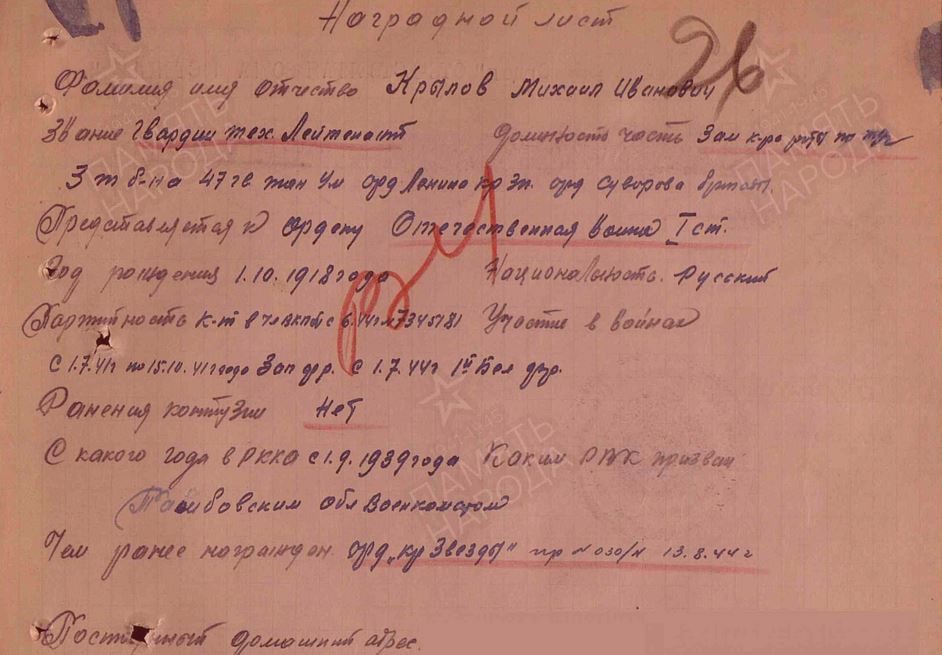 Наградной лист
26
Фамилия имя отчество Крылов Михаил Иванович
Звание Гвардии тех. Лейтенант Должность часть Зам к-ра роты по
3 т б-на 47 гв тан Ум орд Ленина кр Зн. орд Суворова
Представляется к ордену Отечественная война I ст.
Год рождения 1.10.1918 года Национальность. Русский
Партийность к-т в чл ВКП(б) с 6.44г № 7345181 Участие в войнах
с 1.7.41г по 15.10.41 года Зап фр. с 1.7.44г 1й Бел фр.
Ранения контузии Нет
С какого года в РККА с 1.9.1939 года Каким РВК призван
Тамбовским обл Военкоматом
Чем ранее награжден. орд „кр Звезды" пр № 030/н 13.8.44г
Постоянный домашний адрес.
ПАМЯТЬ НАРОДА
ПАМЯТЬ НАРОДА
ПАМЯТЬ НАРОДА